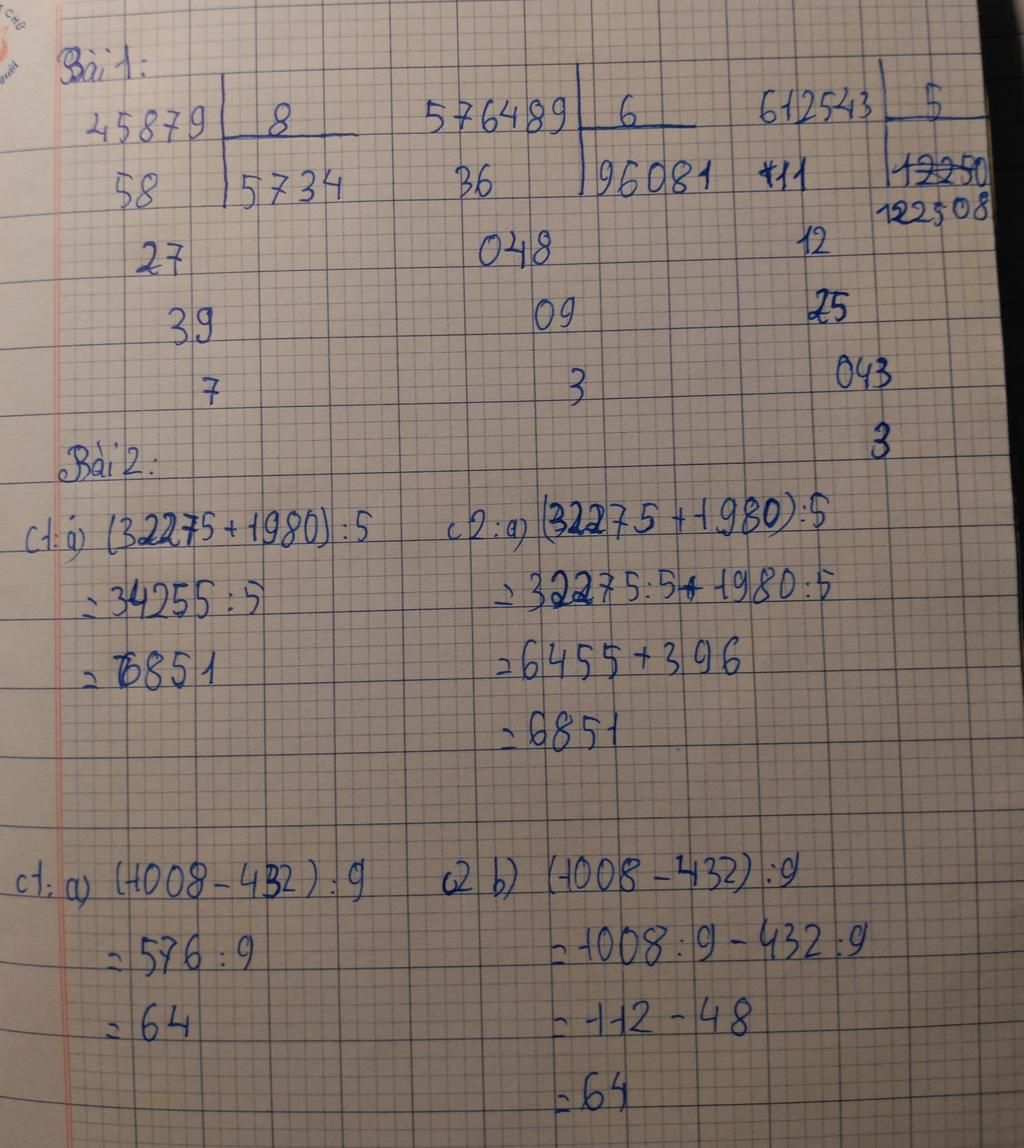 Bài 1:
45879 8 576489 6 612543 5
58 5734 36 96081 11 12250
122508
27 048 12
39 09 25
7 3 043
3
Bài 2:
C1: a) (32275 + 1980) : 5 C2: a) (32275 + 1980) : 5
= 34255 : 5 = 32275 : 5 + 1980 : 5
= 6851 = 6455 + 396
= 6851
C1: a) (1008 - 432) : 9 C2 b) (1008 - 432) : 9
= 576 : 9 = 1008 : 9 - 432 : 9
= 64 = 112 - 48
= 64